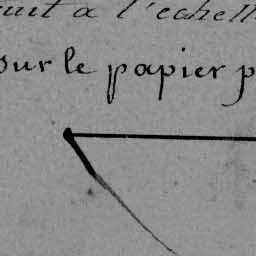 uit a l'echell
sur le papier p